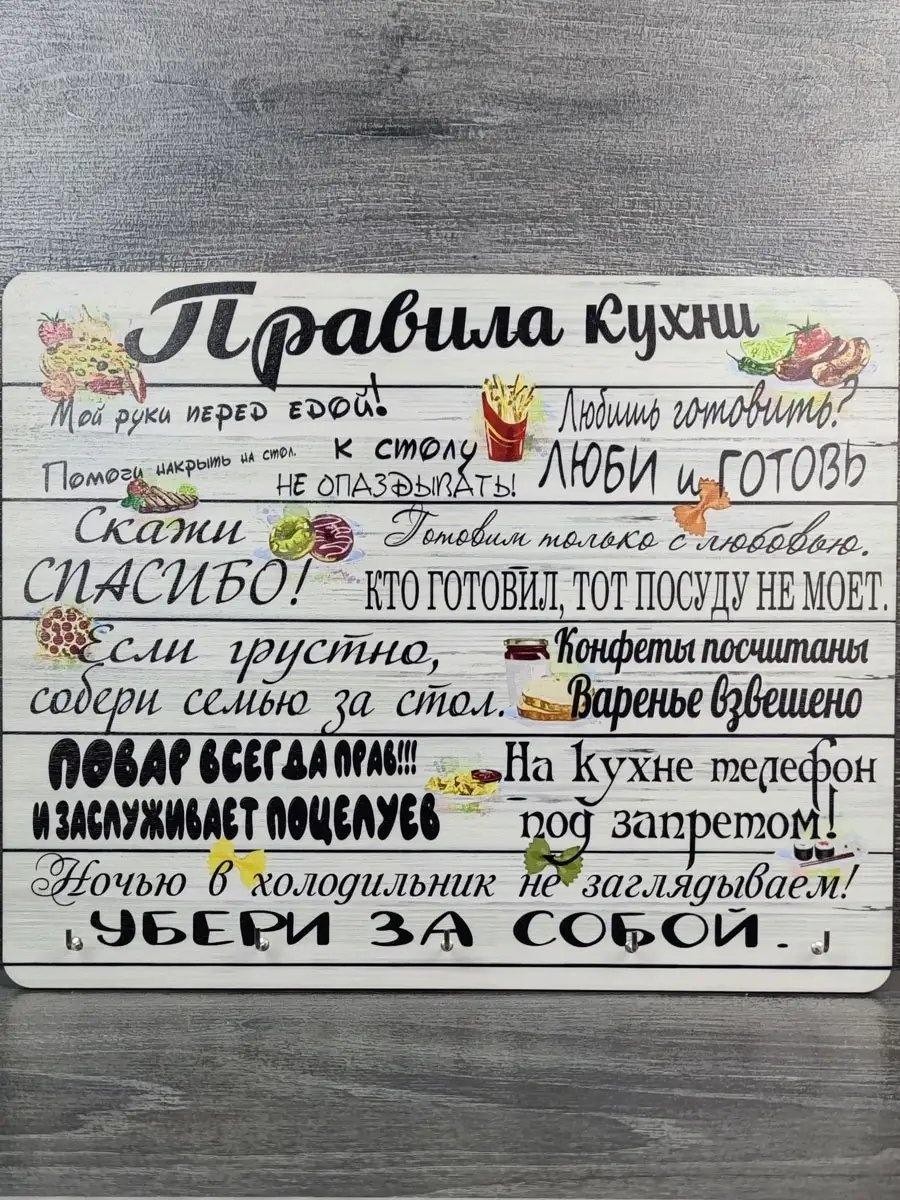 Правила кухни
Мой руки перед едой!
Любишь готовить?
Помоги накрыть на стол.
к столу
НЕ ОПАЗДЫВАТЬ!
ЛЮБИ и ГОТОВЬ
Скажи
СПАСИБО!
Готовим только с любовью.
КТО ГОТОВИЛ, ТОТ ПОСУДУ НЕ МОЕТ.
Если грустно,
собери семью за стол.
Конфеты посчитаны
Варенье взвешено
ПОВАР ВСЕГДА ПРАВ!!!
И ЗАСЛУЖИВАЕТ ПОЦЕЛУЕВ
На кухне телефон
под запретом!
Ночью в холодильник не заглядываем!
УБЕРИ ЗА СОБОЙ.